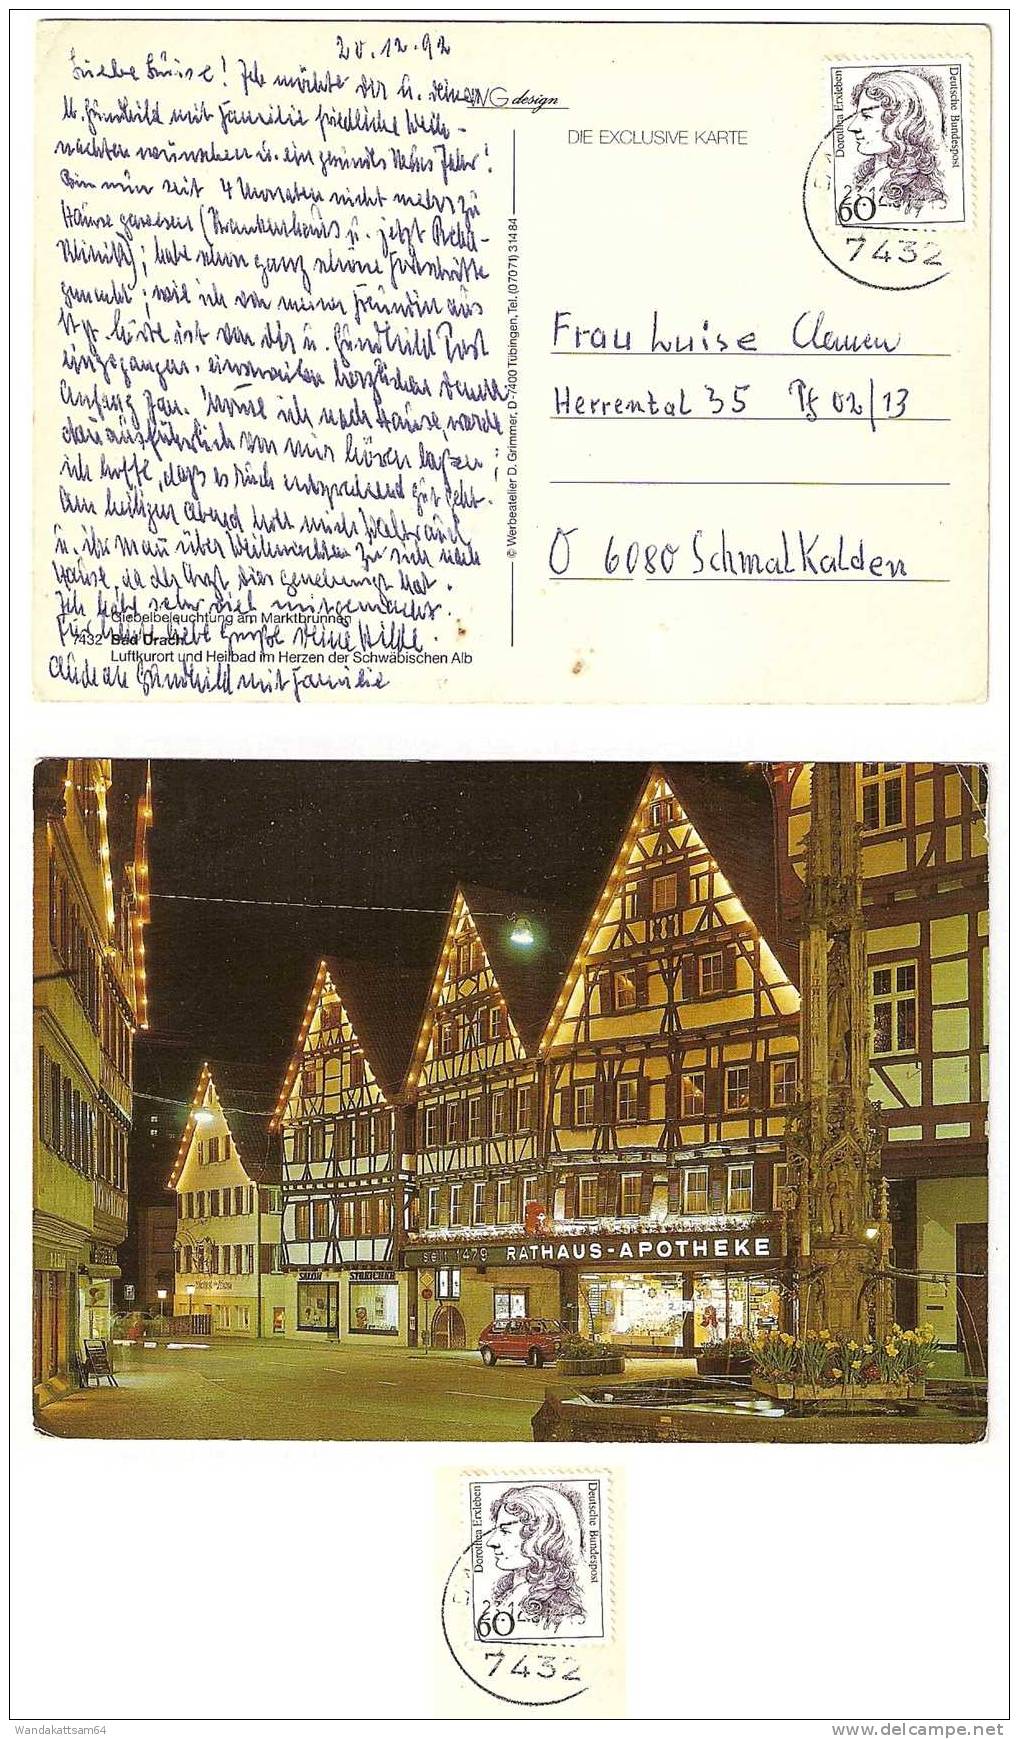 20.12.92
Liebe Luise! Ich möchte dir u. deiner
u. Gundhild mit Familie friedliche Weih-
nachten wünschen u. ein gesundes Neues Jahr!
Bin nun seit 4 Monaten nicht mehr zu
Hause gewesen (Krankenhaus u. jetzt Reha-
Klinik); habe schon ganz schöne Fortschritte
gemacht; wie ich von meiner Freundin aus
höre ist von dir u. Gundhild Post
eingegangen. einstweilen herzlichen Dank.
Anfang Jan. ich nach Hause, werde
ausführlich von mir hören lassen;
ich hoffe, dass es Euch entsprechend gut geht.
Am heiligen Abend holt mich Waltraud
u. ihr Mann über Weihnachten zu sich nach
Hause, da der Arzt dies genehmigt hat.
Ich habe sehr viel mitgemacht.
Für heute liebe Grüße Deine Hilde.
Gundhild mit Familie
Giebelbeleuchtung am Marktbrunnen
7432 Bad Urach
Luftkurort und Heilbad im Herzen der Schwäbischen Alb
design
DIE EXCLUSIVE KARTE
© Werbeatelier D. Grimmer, D-7400 Tübingen, Tel. (07071) 31484
Dorothea Erxleben
Deutsche Bundespost
60
7432
Frau Luise Clemen
Herrental 35 Pf 02/13
O 6080 Schmalkalden
seit 1479 RATHAUS-APOTHEKE
Dorothea Erxleben
Deutsche Bundespost
60
7432
Wandakattsam64
delcampe.net